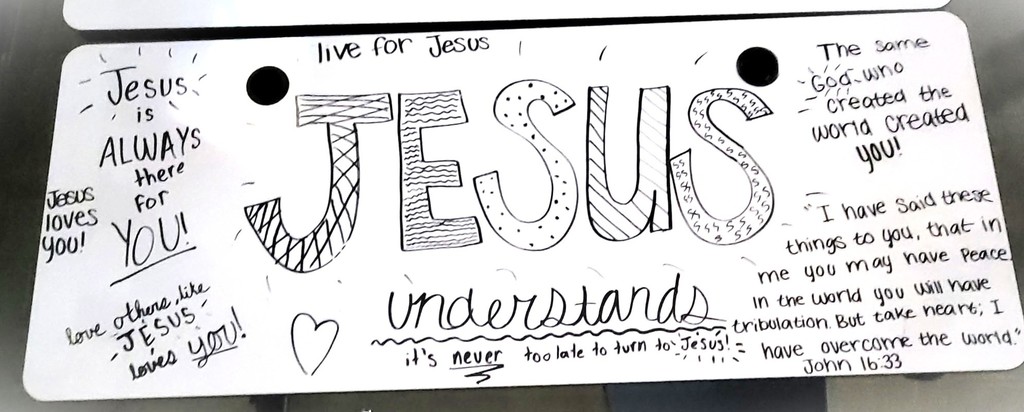 live for Jesus
Jesus
is
ALWAYS
there
for
YOU!
Jesus
loves
you!
love others, like
JESUS
loves YOU!
JESUS
understands
it's never too late to turn to Jesus!
The same
God who
created the
world created
you!
"I have said these
things to you, that in
me you may have peace.
In the world you will have
tribulation. But take heart; I
have overcome the world."
John 16:33